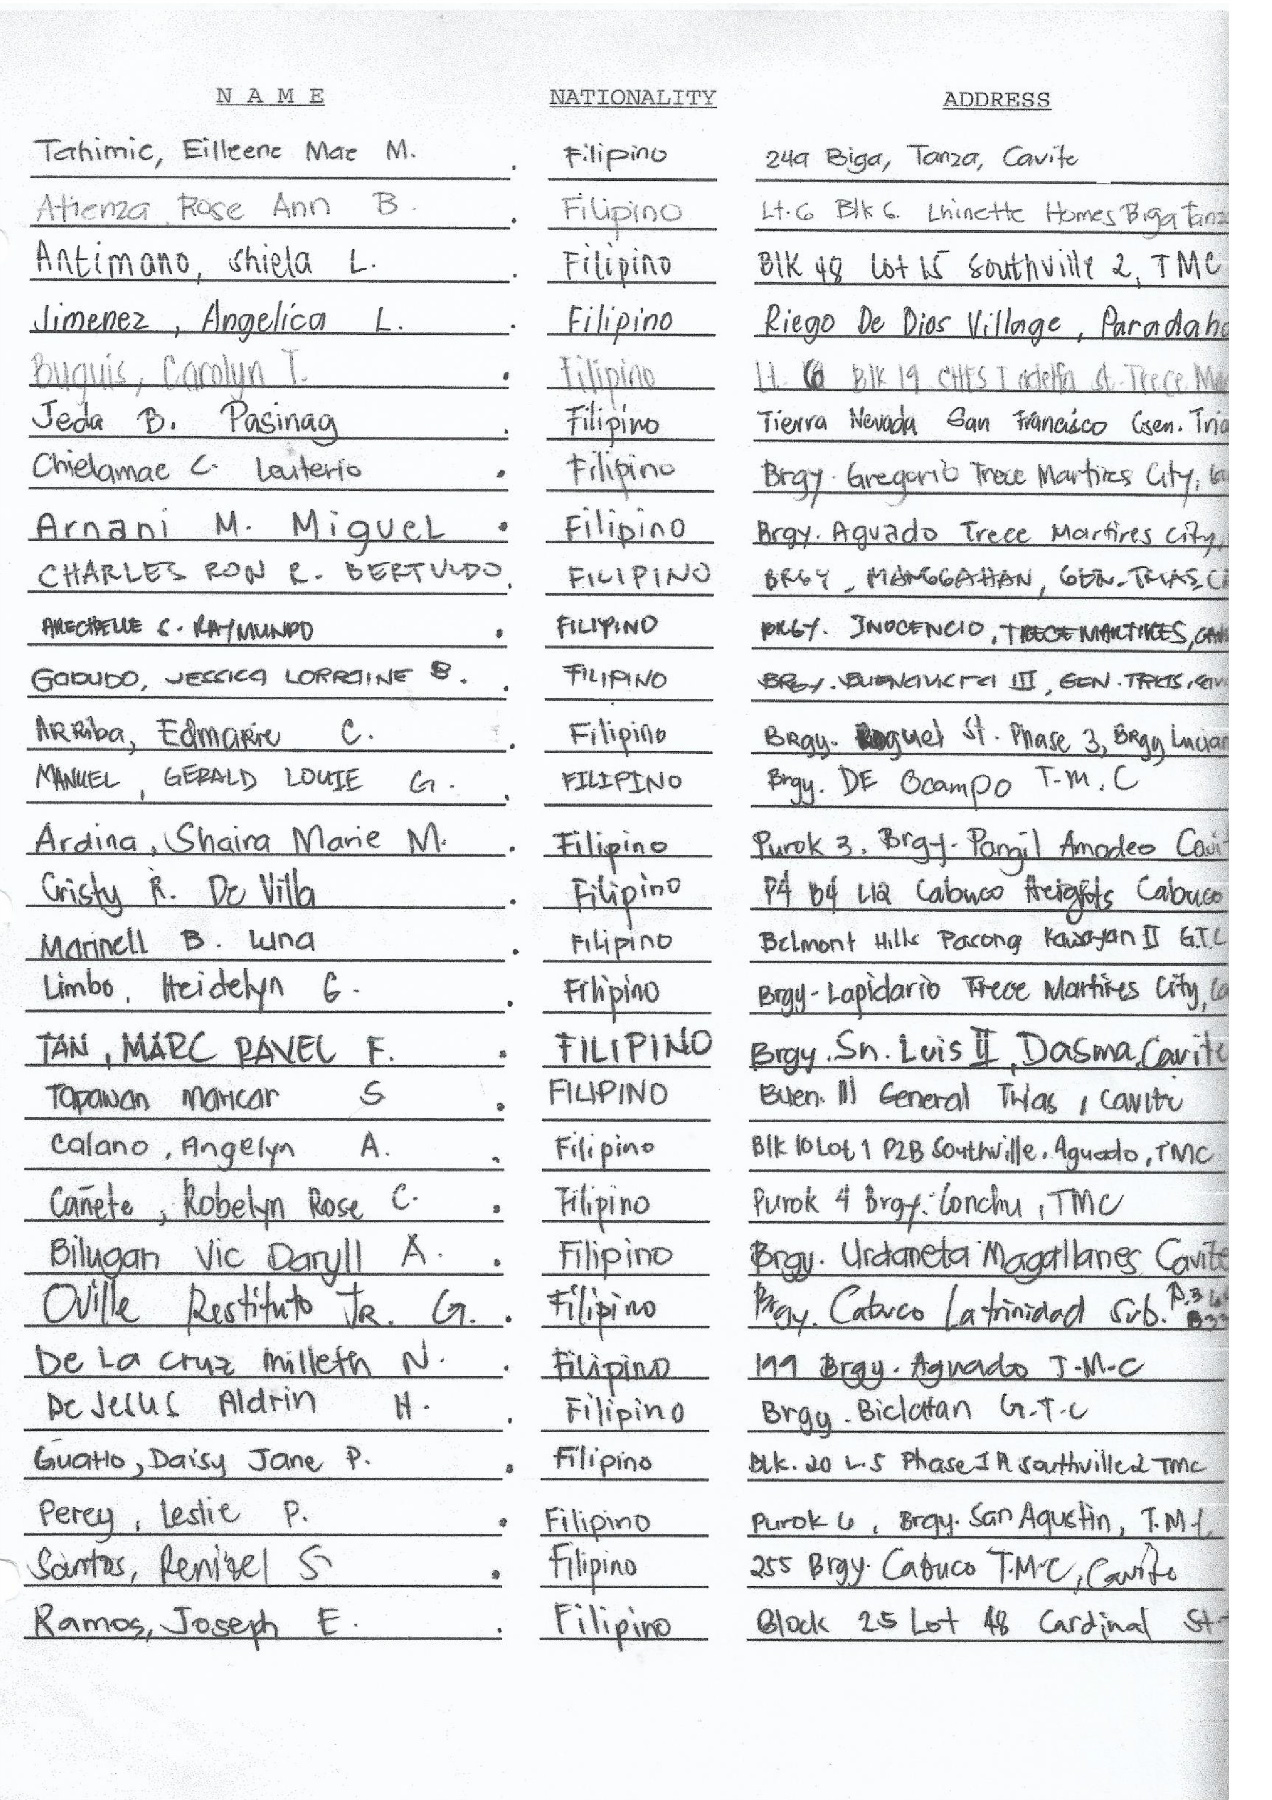 NAME NATIONALITY ADDRESS
Tahimic, Eilleene Mae M. Filipino 24a Biga, Tanza, Cavite
Atienza, Rose Ann B. Filipino Lt. 6 Blk 6. Lhinette Homes Biga Tanz
Antimano, Shiela L. Filipino Blk 48 Lot 15 Southville 2, TMC
Jimenez, Angelica L. Filipino Riego De Dios Village, Paradaho
Buquis, Carolyn T. Filipino Lt. 6 Blk 19 st. Trece Ma
Jeda B. Pasinag Filipino Tierra Nevada San Francisco Gen. Tria
Chielamae C. Lauterio Filipino Brgy. Gregorio Trece Martires City,
Arnani M. Miguel Filipino Brgy. Aguado Trece Martires City,
CHARLES RON R. BERTULDO. FILIPINO BRGY. MANGGAHAN, GEN. TRIAS, C
ARECHELLE S. RAYMUNDO. FILIPINO BRGY. INOCENCIO, TRECE MARTIRES, CAV
GODUDO, JESSICA LORRAINE B. FILIPINO BRGY. BUENAVISTA III, GEN. TRIAS, cav
ARRiba, Edmarie C. Filipino BRgy. St. Phase 3, BRgy Lucian
MANUEL, GERALD LOUIE G. FILIPINO Brgy. DE Ocampo T.M.C
Ardina, Shaira Marie M. Filipino Purok 3. Brgy. Pangil Amadeo Cavit
Cristy R. De Villa Filipino P4 B4 L12 Cabuco Heights Cabuco
Marinell B. Luna. Filipino Belmont Hills Pasong Kawayan II G.T.C
Limbo, Heidelyn G. Filipino Brgy. Lapidario Trece Martires City, Ca
TAN, MARC RAVEL F. FILIPINO Brgy. Sn. Luis II, Dasma, Cavite
Tapawan Maricar S. FILIPINO Buen. III General Trias, Cavite
Calano, Angelyn A. Filipino Blk 10 Lot 1 P2B Southville. Aguado, TMC
Cañete, Robelyn Rose C. Filipino Purok 4 Brgy. Conchu, TMC
Bilugan Vic Daryll A. Filipino Brgy. Urdaneta Magallanes Cavite
Oville Restituto JR. G. Filipino Brgy. Cabuco Latrinidad Sub. P.3
De La Cruz Milleth N. Filipino 199 Brgy. Aguado T.M.C
De Jesus Aldrin H. Filipino Brgy. Biclatan G.T.C
Guatto, Daisy Jane P. Filipino Blk. 20 L.5 Phase 1A Southville 2 TMC
Percy, Leslie P. Filipino Purok 6, Brgy. San Agustin, T.M.C
Santos, Renizel S. Filipino 255 Brgy. Cabuco T.M.C, Cavite
Ramos, Joseph E. Filipino Block 25 Lot 48 Cardinal St.